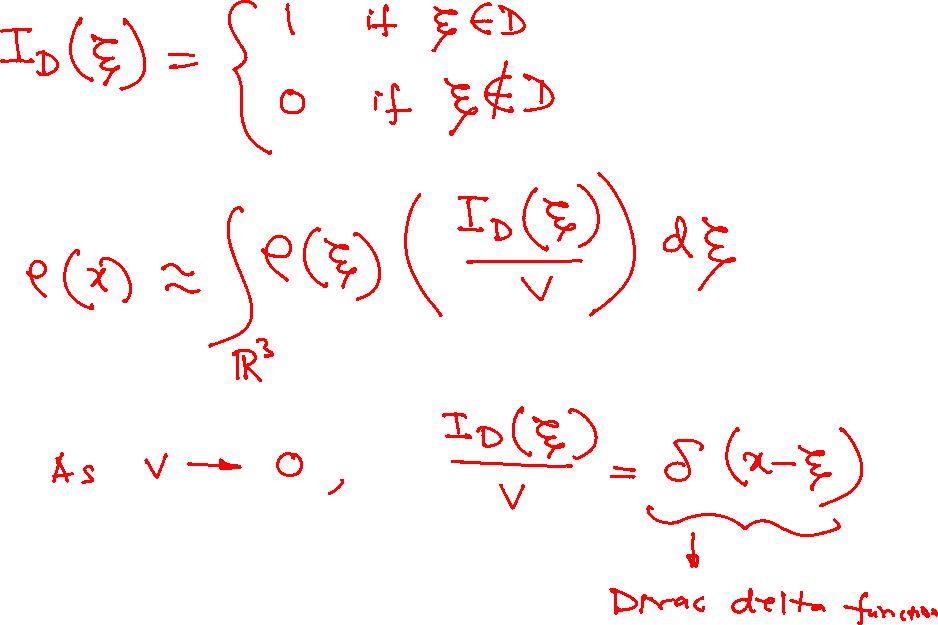 I_D(ξ) = { 1 if ξ ∈ D
0 if ξ ∉ D
ρ(x) ≈ ∫_{ℝ³} ρ(ξ) ( I_D(ξ) / V ) dξ
As V → 0, I_D(ξ) / V = δ(x-ξ)
Dirac delta function